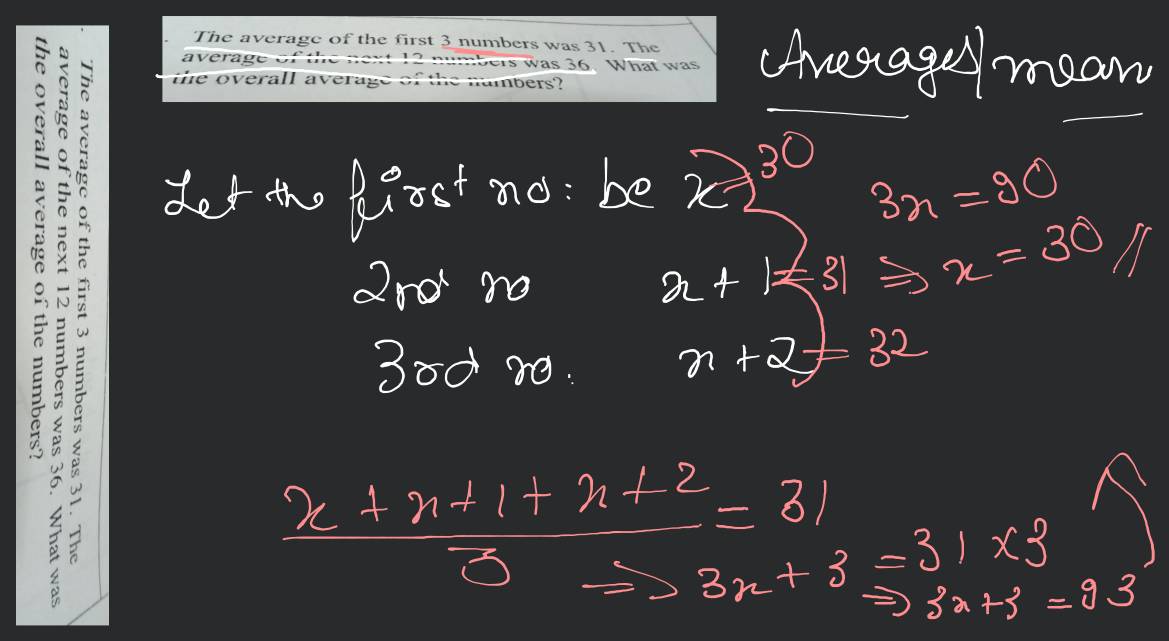 The average of the first 3 numbers was 31. The
average of the next 12 numbers was 36. What was
the overall average of the numbers?
The average of the first 3 numbers was 31. The
average of the next 12 numbers was 36. What was
the overall average of the numbers?
Averages/mean
Let the first no: be x = 30
3x = 90
2nd no x + 1 = 31 ⇒ x = 30 //
3rd no. x + 2 = 32
x + x + 1 + x + 2 = 31
3
⇒ 3x + 3 = 31 × 3
⇒ 3x + 3 = 93